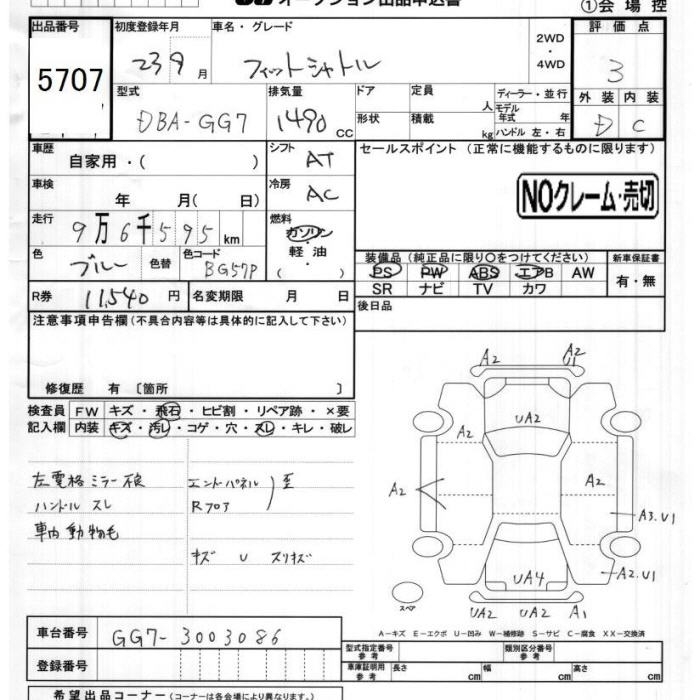 オークション出品申込書
①会場控
出品番号
5707
初度登録年月
23 9 月
車名・グレード
フィットシャトル
2WD
・
4WD
評価点
3
型式
DBA-GG7
排気量
1490 CC
ドア
定員
人
ディーラー・並行
モデル年式 年
形状
積載
kg
ハンドル 左・右
外装 内装
D C
車歴
自家用・( )
シフト
AT
セールスポイント (正常に機能するものに限ります)
NOクレーム・売切
車検
年 月( 日)
冷房
AC
走行
9万6千595km
燃料
ガソリン
軽・油
( )
色
ブルー
色替
色コード
BG57P
装備品 (純正品に限り〇をつけてください)
PS PW ABS エアB AW
SR ナビ TV カワ
新車保証書
有・無
R券
11,540 円
名変期限 月 日
後日品
注意事項申告欄(不具合内容等は具体的に記入して下さい)
修復歴 有 〔箇所 〕
検査員記入欄
FW キズ・飛石・ヒビ割・リペア跡・×要
内装 キズ・汚レ・コゲ・穴・スレ・キレ・破レ
左電格ミラー不良
ハンドル スレ
車内動物毛
エンドパネル
Rフロア
キズ U スリキズ
A2
A2
U1
UA2
A2
A2
A2
A3.U1
UA4
A2.U1
UA2 UA2 A1
スペア
A-キズ E-エクボ U-凹み W-補修跡 S-サビ C-腐食 XX-交換済
車台番号
GG7-3003086
登録番号
型式指定番号
参考
類別区分番号
参考
車庫証明用
参考
長さ cm
幅 cm
高さ cm
希望出品コーナー(コーナーは各会場により異なります。)